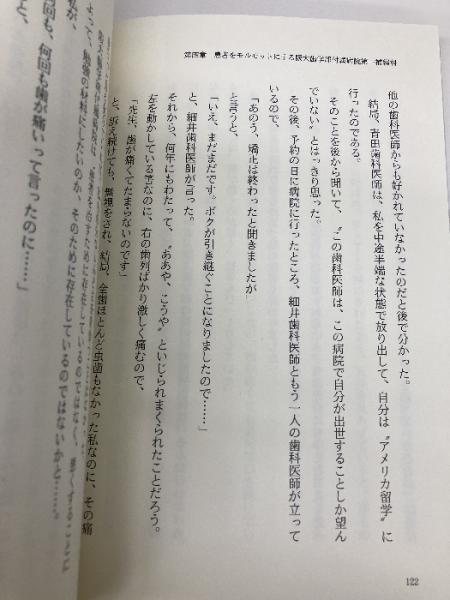 第四章 患者をモルモットにする阪大歯学部付属病院第一補綴科
他の歯科医師からも好かれていなかったのだと後で分かった。
結局、青田歯科医師は、私を中途半端な状態で放り出して、自分は〝アメリカ留学〟に
行ったのである。
そのことを後から聞いて、〝この歯科医師は、この病院で自分が出世することしか望ん
でいない〟とはっきり思った。
その後、予約の日に病院に行ったところ、細井歯科医師ともう一人の歯科医師が立って
いるので、
「あのう、矯正は終わったと聞きましたが
と言うと、
「いえ、まだまだです。ボクが引き継ぐことになりましたので……」
と、細井歯科医師が言った。
それから、何年にもわたって、〝ああや、こうや〟といじられまくられたことだろう。
左を動かしている筈なのに、右の歯列ばかり激しく痛むので、
「先生、歯が痛くてたまらないのです」
と、訴え続けても、無視をされ、結局、全歯ほとんど虫歯もなかった私なのに、その痛
よって、勉強の材料にしたいのか、そのために存在しているのではないかと……。
私が、
何回も、何回も歯が痛いって言ったのに……」
と、
122